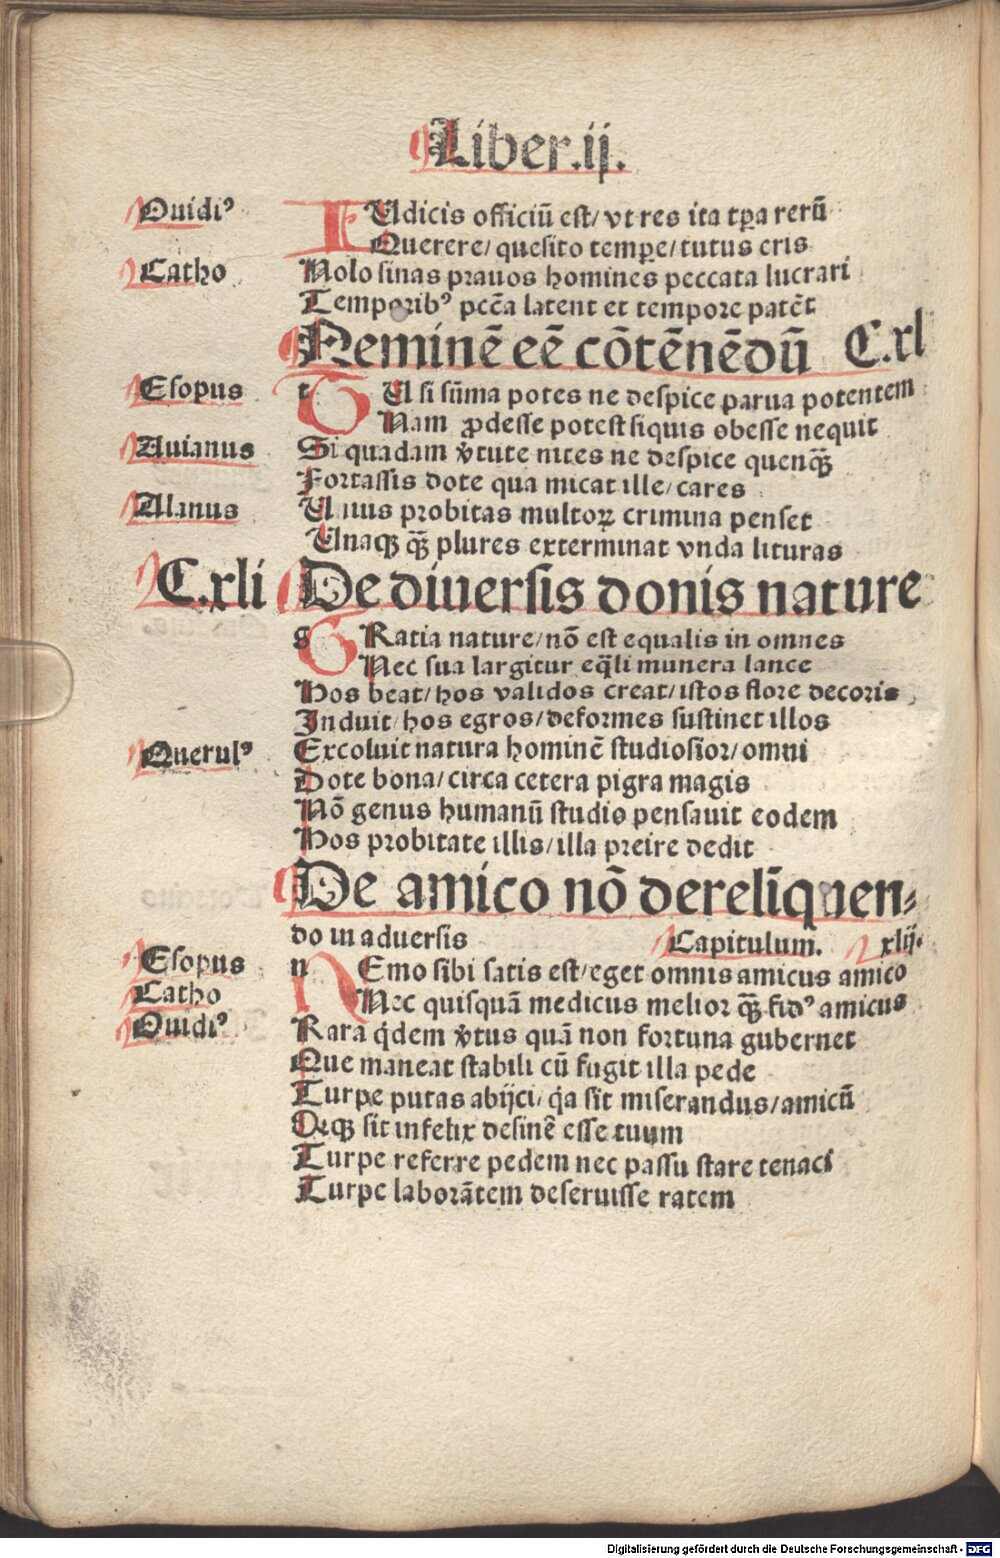 Liber.ij.
Ouidiꝰ IUdicis officiū est/ vt res ita tꝑa rerū
Querere/ quesito temꝑe/ tutus eris
Catho Nolo sinas prauos homines peccata lucrari
Temporibꝰ pcc̄a latent et tempore patēt
Neminē eē cōtēnēdū C.xl
Esopus t TU si sūma potes ne despice parua potentem
Nam ꝓdesse potest siquis obesse nequit
Auianus Si quadam v̄tute nites ne despice quenq̄ꝫ
Fortassis dote qua micat ille/ cares
Alanus Unius probitas multoꝝ crimina penset
Unaqꝫ q̄ꝫ plures exterminat vnda lituras
C.xli De diuersis donis nature
g GRatia nature/ nō est equalis in omnes
Nec sua largitur eq̄li munera lance
Hos beat/ hos validos creat/ istos flore decoris
Induit/ hos egros/ deformes sustinet illos
Querulꝰ Excoluit natura hominē studiosior/ omni
Dote bona/ circa cetera pigra magis
Nō genus humanū studio pensauit eodem
Hos probitate illis/ illa preire dedit
De amico nō derelīquen⸗
do in aduersis Capitulum. xlij.
Esopus n NEmo sibi satis est/ eget omnis amicus amico
Catho Nec quisquā medicus melior q̄ꝫ fidꝰ amicus
Ouidiꝰ Rara q̇dem v̄tus quā non fortuna gubernet
Que maneat stabili cū fugit illa pede
Turpe putas abijci/ q̇a sit miserandus/ amicū
Qeqꝫ sit infelix desinē esse tuum
Turpe referre pedem nec passu stare tenaci
Turpe laborātem deseruisse ratem
Digitalisierung gefördert durch die Deutsche Forschungsgemeinschaft - DFG